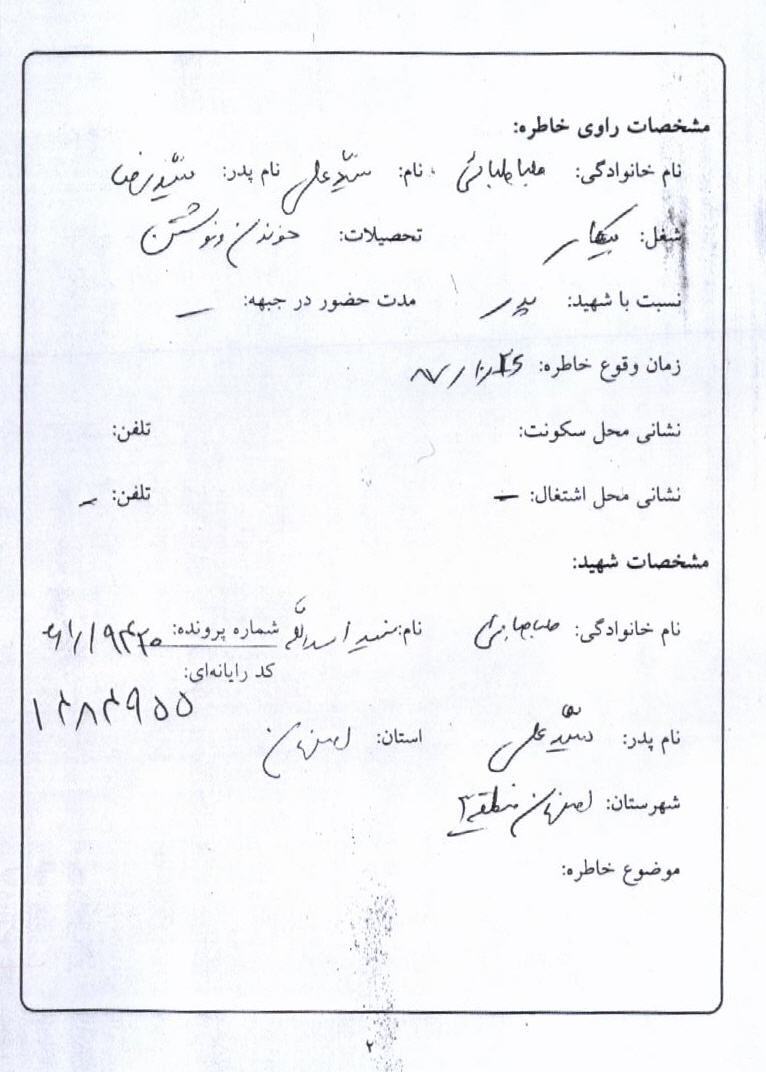 مشخصات راوی خاطره:
نام خانوادگی: طباطبائی نام: سید علی نام پدر: سید رضا
شغل: بیکار تحصیلات: خوندن و نوشتن
نسبت با شهید: پدر مدت حضور در جبهه: –
زمان وقوع خاطره: ۸۷/۱۰/۲۶
نشانی محل سکونت: تلفن:
نشانی محل اشتغال: – تلفن: –
مشخصات شهید:
نام خانوادگی: طباطبایی نام: سید اسدالله شماره پرونده:
کد رایانه‌ای:
۱۲۸۲۹۵۵
نام پدر: سید علی استان: اصفهان
شهرستان: اصفهان منطقه ۲
موضوع خاطره:
۲